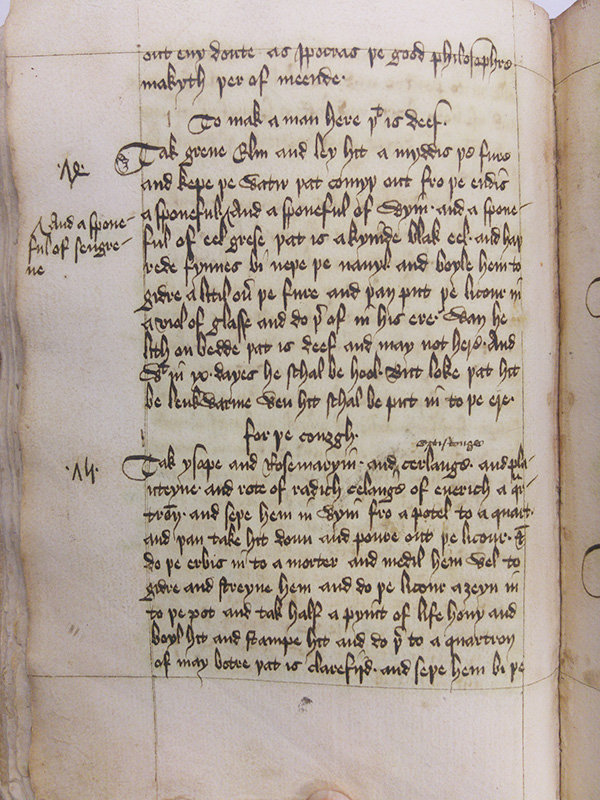 out eny doute as Ypocras þe good philosophre
makyth þer of meende·
To mak a man here þt is deef·
Tak grene Elm and ley hit a myddis þe fure
and kepe þe watir þat comyþ out fro þe endis
a sponeful· And a sponeful of wyin· and a spone-
ful of eel grese þat is a kyinde blak eel· and haþ
rede fynnes bi neþe þe nauyl· and boyle hem to
gidre a litil oũ þe fure and þan put þe licour in
a viol of glasse and do þt of in his ere· Whan he
lith on bedde þat is deef and may not here· And
wt in ix· dayes he schal be hool· But loke þat hit
be leuk warme wen hit schal be put in to þe ere·
·10·
And a spone-
ful of sengre-
ne
for þe couȝgh·
hertistonges
Tak ysope and Rosemaryin· and cerlange· and pla-
nteyne· and rote of radich celange of euerich a qr̃-
trõn· and seþe hem in wyin fro a potel to a quart·
and þan take hit doun and poure out þe licour· &
do þe erbis in to a morter and medil hem wel to
gidre and streyne hem and do þe licour aȝeyn in
to þe pot and tak half a pyint of life hony and
boyl hit and stampe hit and do þt to a quartron
of may botre þat is clarefijd· and seþe hem bi þe
·11·